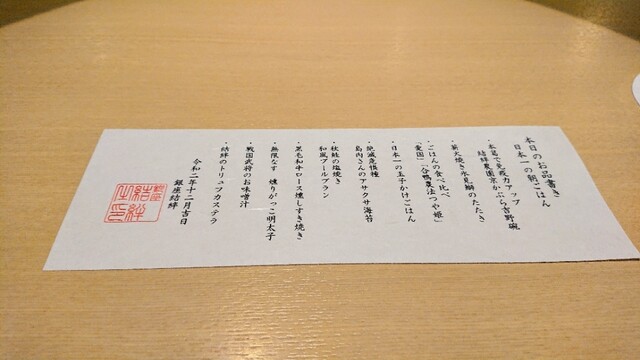 本日のお品書き
日本一の朝ごはん
・本葛で免疫力アップ
結絆農園京かぶら吉野碗
・藁火焼き氷見鰤のたたき
・ごはんの食べ比べ
愛国一「合鴨農法つや姫」
・日本一の玉子かけごはん
・絶滅危惧種
島内さんのアサクサ海苔
・秋鮭の塩焼き
和風ブールブラン
・黒毛和牛ロース燻しすき焼き
・無限なす 燻りがっこ明太子
・戦国武将のお味噌汁
・結絆のトリュフカステラ
令和二年十二月吉日
銀座結絆